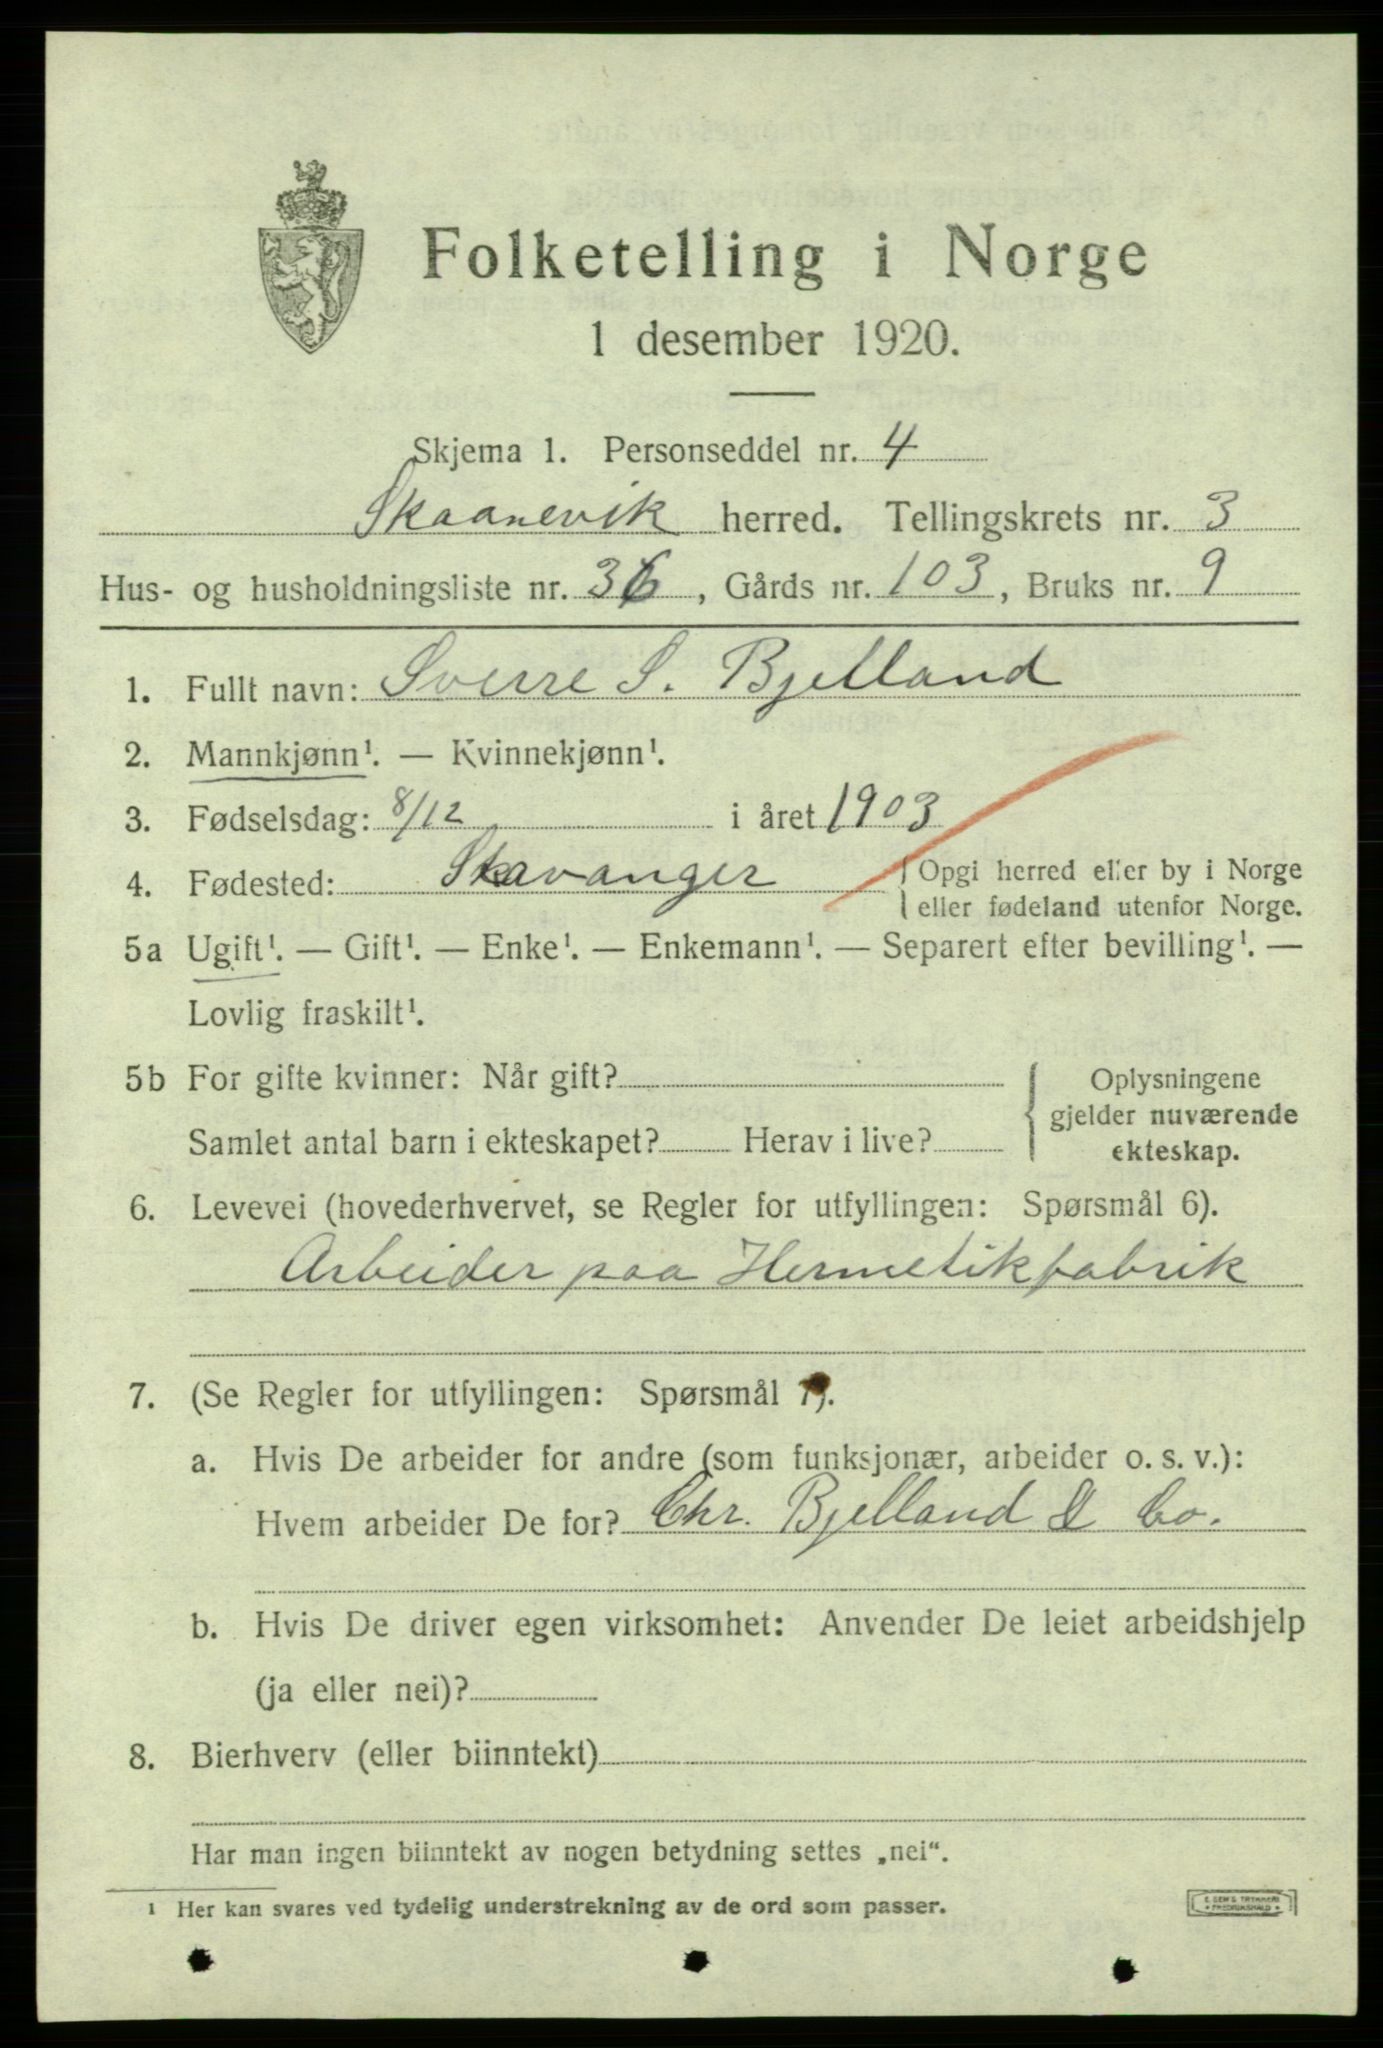 Folketelling i Norge
1 desember 1920.
Skjema 1. Personseddel nr. 4
Skaanevik herred. Tellingskrets nr. 3
Hus- og husholdningsliste nr. 36, Gårds nr. 103, Bruks nr. 9
1. Fullt navn: Sverre S. Bjelland
2. Mannkjønn¹. — Kvinnekjønn¹.
3. Fødselsdag: 8/12 i året 1903
4. Fødested: Stavanger
Opgi herred eller by i Norge
eller fødeland utenfor Norge.
5a Ugift¹. — Gift¹. — Enke¹. — Enkemann¹. — Separert efter bevilling¹. —
Lovlig fraskilt¹.
5b For gifte kvinner: Når gift?
Samlet antal barn i ekteskapet? Herav i live?
Oplysningene
gjelder nuværende
ekteskap.
6. Levevei (hovederhvervet, se Regler for utfyllingen: Spørsmål 6).
Arbeider paa Hermetikfabrik
7. (Se Regler for utfyllingen: Spørsmål 7).
a. Hvis De arbeider for andre (som funksjonær, arbeider o. s. v.):
Hvem arbeider De for? Chr. Bjelland & Co.
b. Hvis De driver egen virksomhet: Anvender De leiet arbeidshjelp
(ja eller nei)?
8. Bierhverv (eller biinntekt)
Har man ingen biinntekt av nogen betydning settes „nei“.
¹ Her kan svares ved tydelig understrekning av de ord som passer.